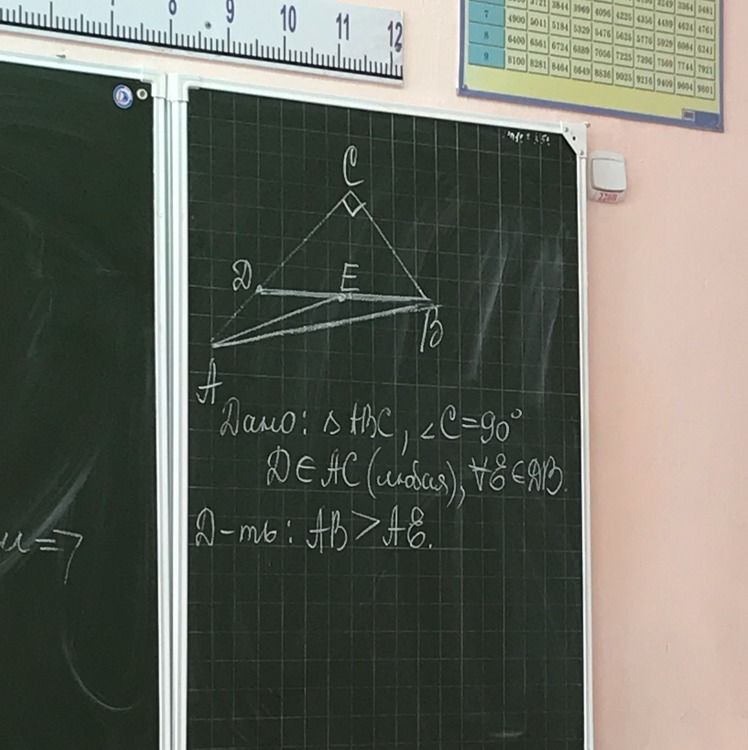 8 9 10 11 12
7
8
9
4900 5041 5184 5329 5476 5625 5776 5929 6084 6241
6400 6561 6724 6889 7056 7225 7396 7569 7744 7921
8100 8281 8464 8649 8836 9025 9216 9409 9604 9801
220В
C
D E
B
A
Дано: △ABC, ∠C=90°
D∈AC (любая), ∀E∈DB.
Д-ть: AB > AE.